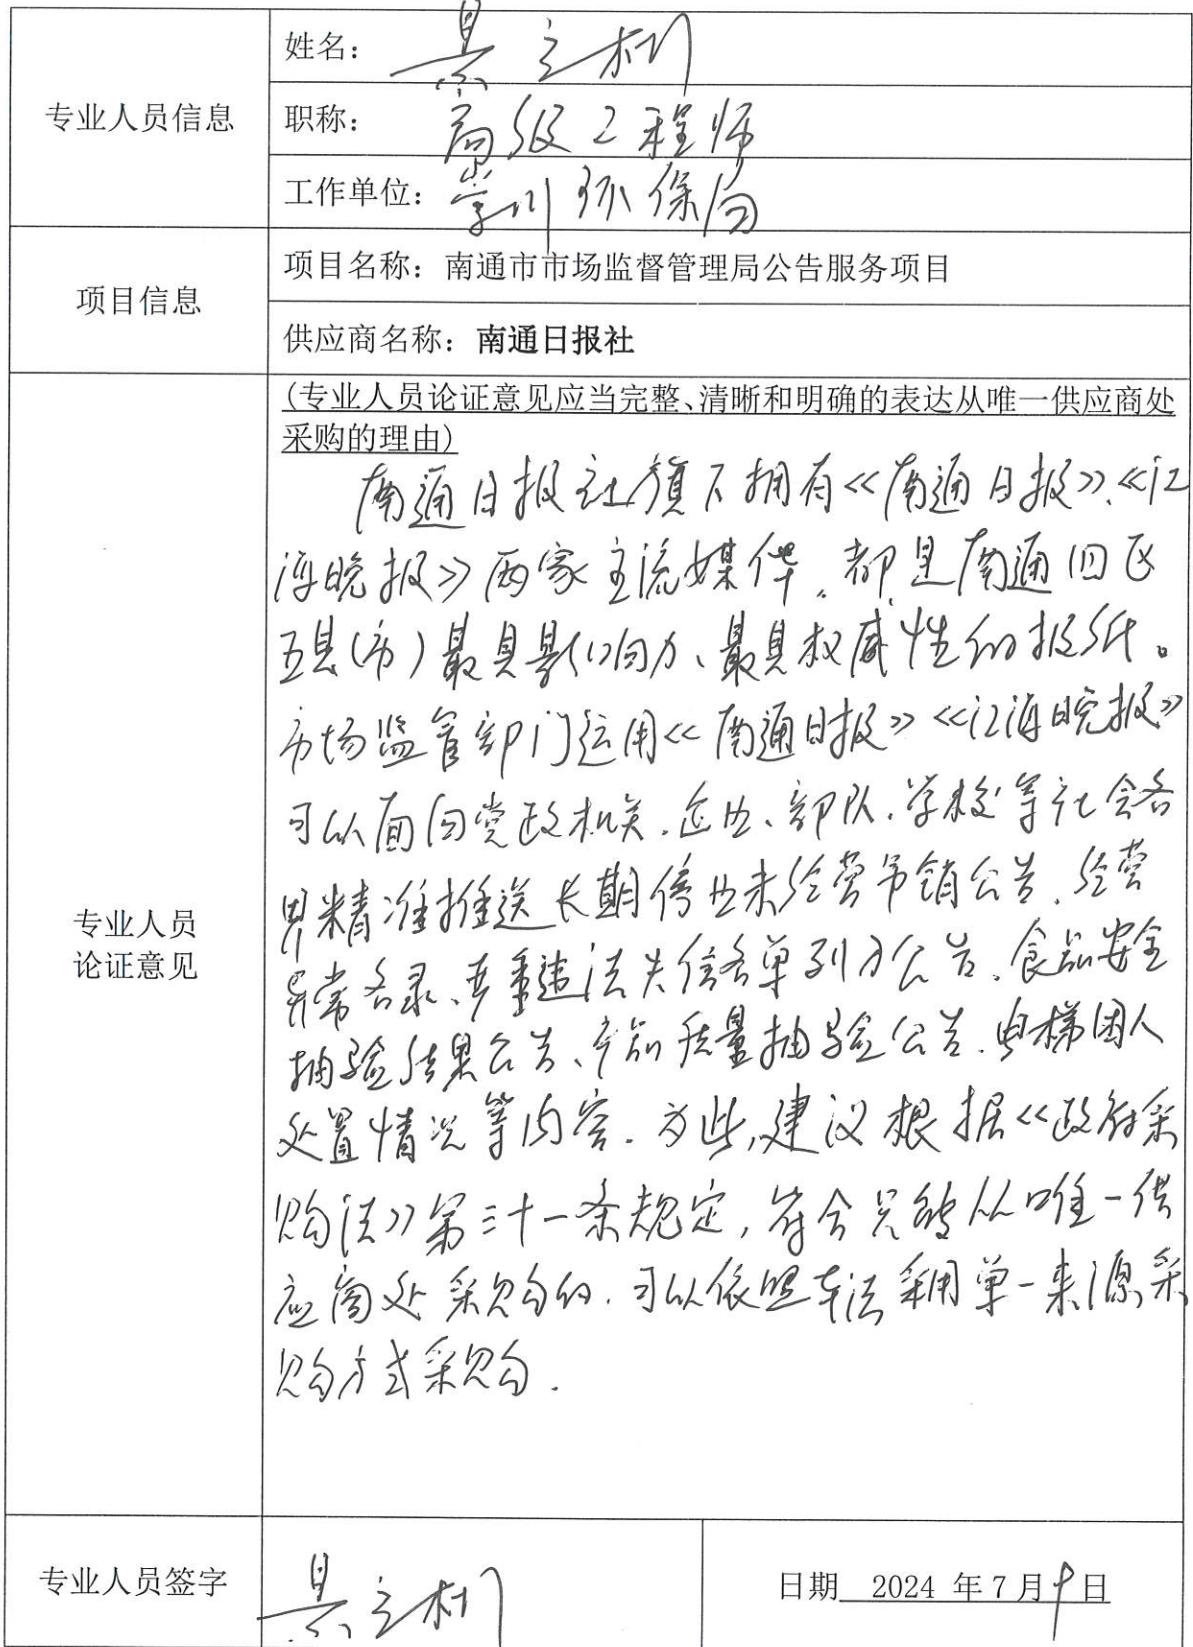 专业人员信息
姓名：
职称：高级工程师
工作单位：崇川环保局
项目信息
项目名称：南通市市场监督管理局公告服务项目
供应商名称：南通日报社
专业人员
论证意见
(专业人员论证意见应当完整、清晰和明确的表达从唯一供应商处
采购的理由)
南通日报社旗下拥有《南通日报》、《江
海晚报》两家主流媒体，都是南通四区
五县(市)最具影响力、最具权威性的报纸。
市场监管部门运用《南通日报》《江海晚报》
可以面向党政机关、企业、部队、学校等社会各
界精准推送长期停业未经营吊销公告、经营
异常名录、严重违法失信名单列入公告、食品安全
抽验结果公告、产品质量抽验公告、电梯困人
处置情况等内容。为此,建议根据《政府采
购法》第三十一条规定，符合只能从唯一供
应商处采购的，可以依照本法采用单一来源采
购方式采购.
专业人员签字
日期 2024 年 7 月 日